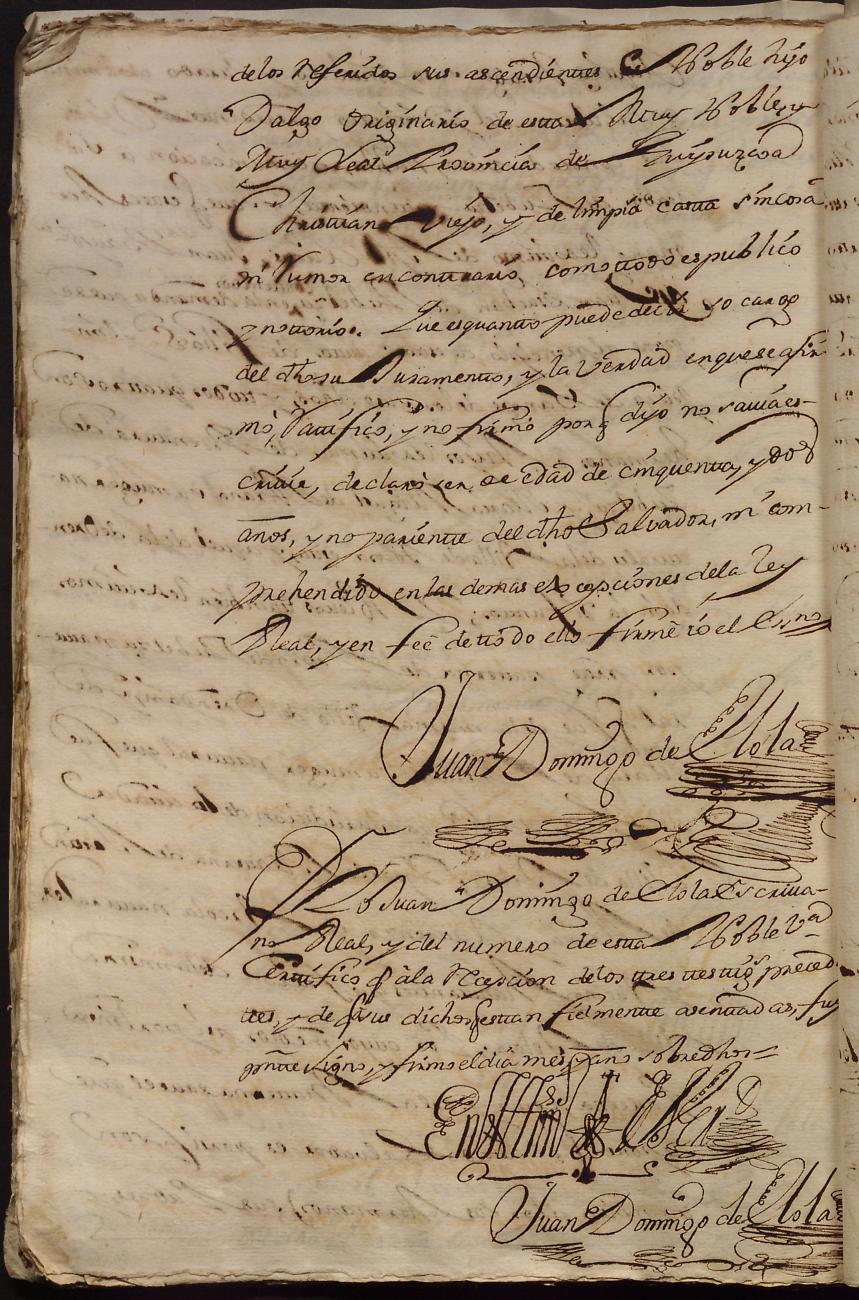 delos referidos sus ascendientes es Noble hijo
Dalgo originario de esta Muy Noble, y
Muy Leal Provincia de Guipuzcoa
Christian Viejo, y de limpia casta sin cosa
ni rumor encontrario, como todo es publico
y notorio. Que es quanto puede decir so cargo
del dho su Juramento, y la verdad en que se afir
mó, Ratificó, y no firmó porq̃ dijo no savia es-
crivir, declaró ser de edad de cinquenta, y dos
anos, y no pariente del dho Salvador, ni com-
prehendido en las demas excepciones dela Ley
Real, y en feé de todo ello firmé io el Essno
Juan Domingo de Elola
Yo Juan Domingo de Elola Escriva-
no Real, y del numero de esta Noble Va
Certifico q̃ à la recepcion de los tres testigs preced
tes, y de q̃ sus dichos estan fielmente asentadas, fuy
pnte signo, y firmo el dia mes, y ano sobredhos=
En Testimo de Verd
Juan Domingo de Elola